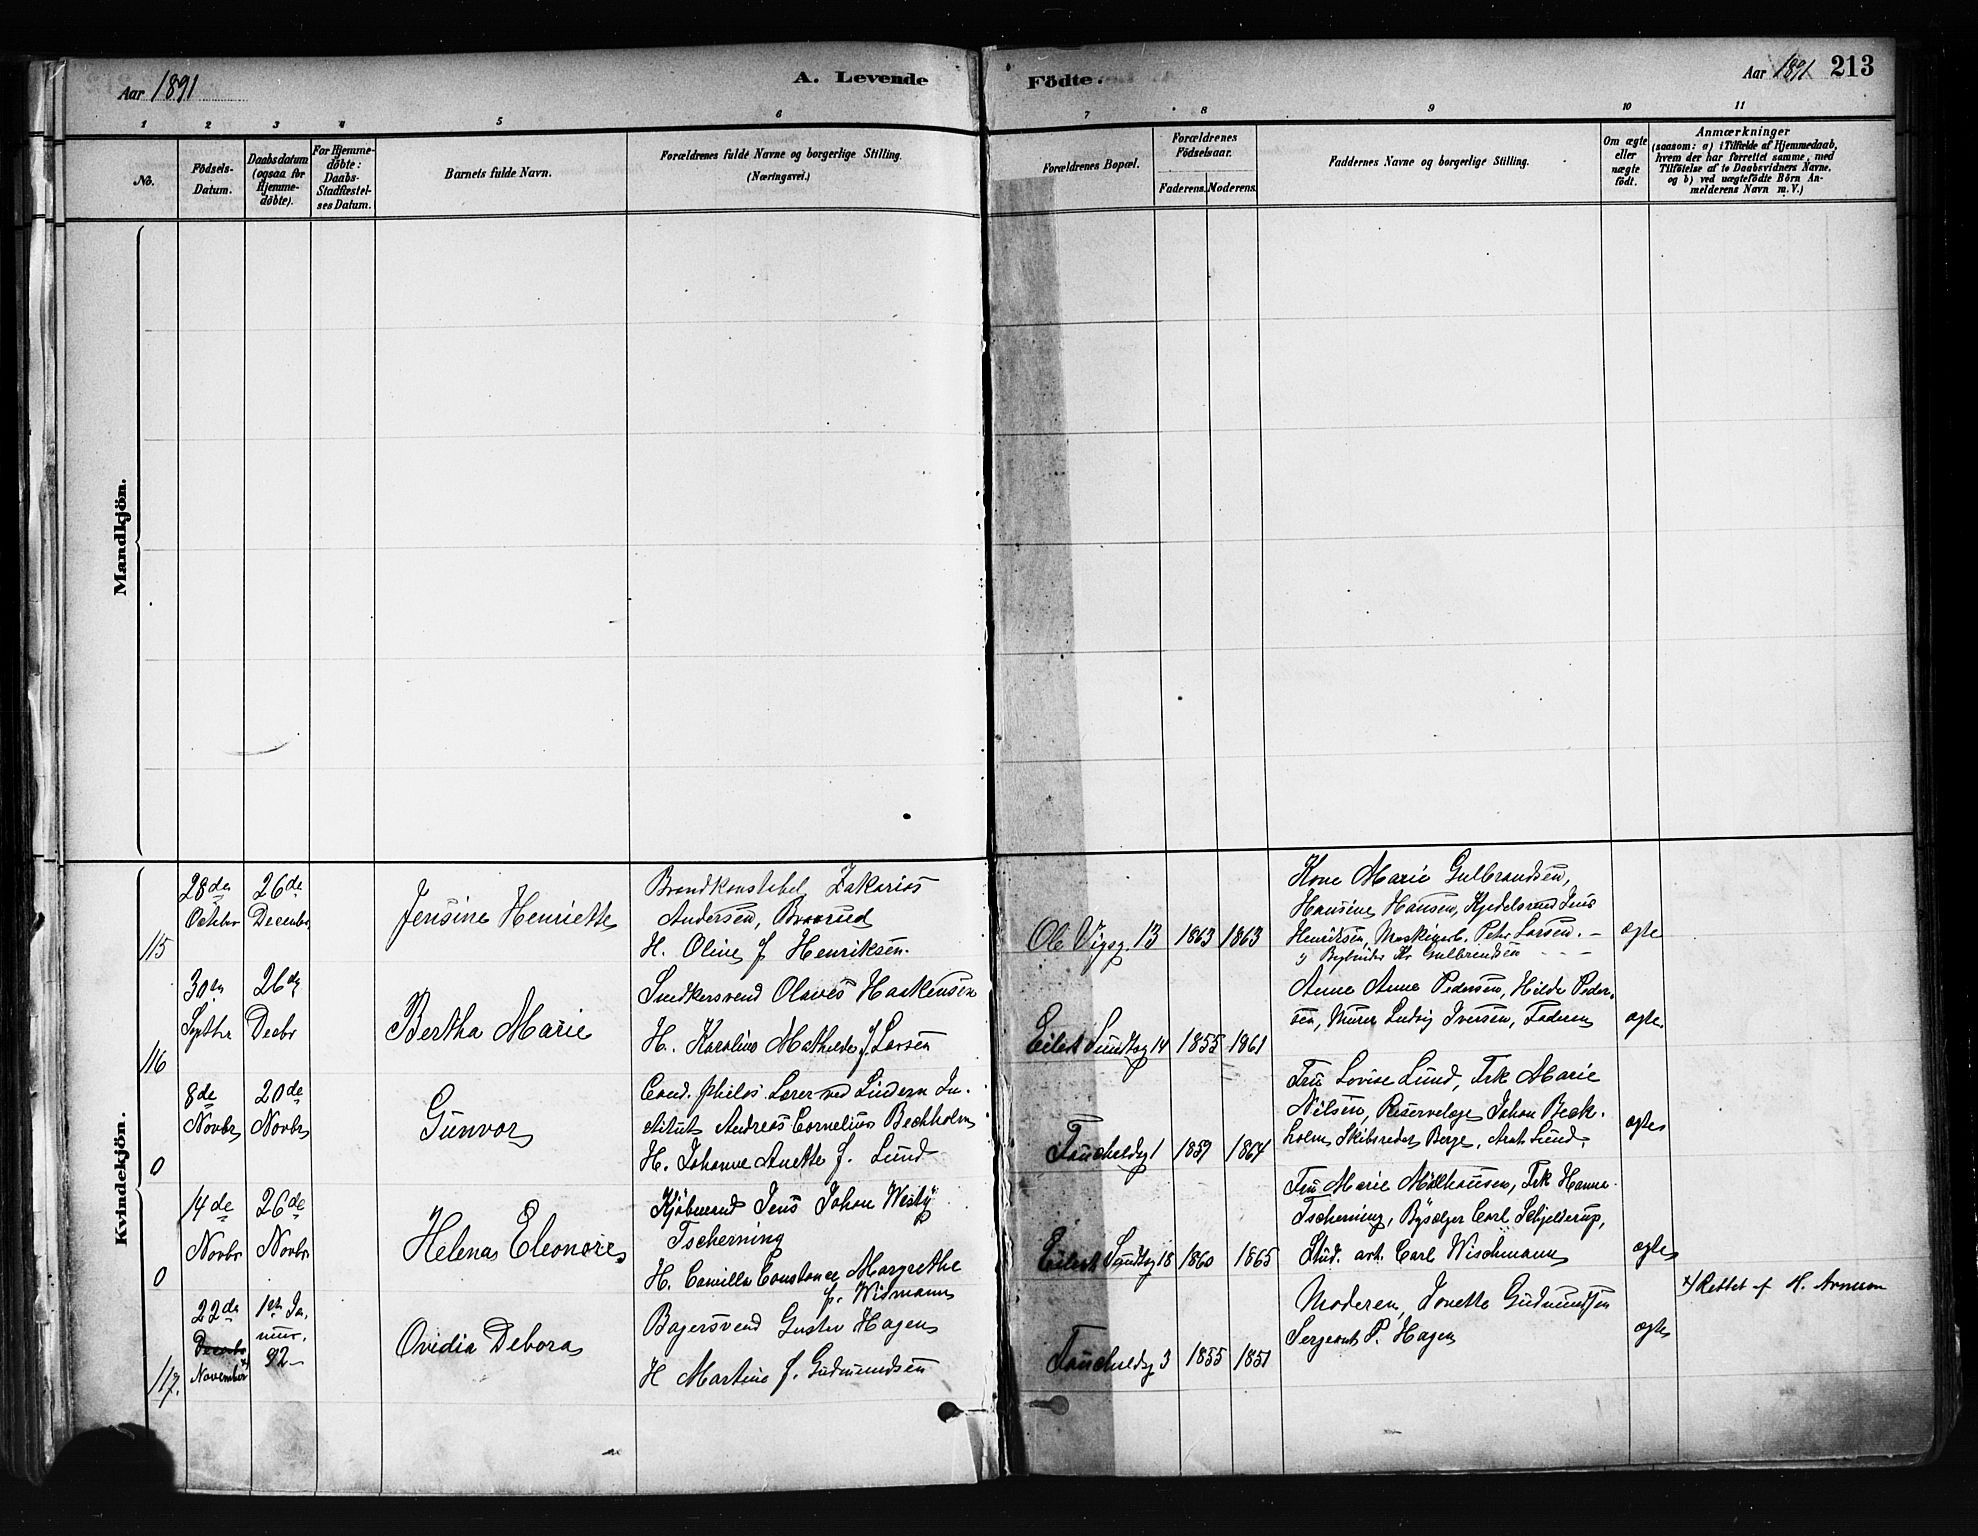 Aar 1891
A. Levende
Födte.
Aar 1891 213
1 2 3 4 5 6 7 8 9 10 11
No.
Födsels-
Datum.
Daabsdatum
(ogsaa for
Hjemme-
døbte).
For Hjemme-
døbte:
Daabs-
Stadfæstel-
ses Datum.
Barnets fulde Navn.
Forældrenes fulde Navne og borgerlige Stilling.
(Næringsvei.)
Forældrenes Bopæl.
Forældrenes
Födselsaar.
Faderens. Moderens.
Faddernes Navne og borgerlige Stilling.
Om ægte
eller
uægte
født.
Anmærkninger
(saasom: a) i Tilfælde af Hjemmedaab,
hvem der har forrettet samme, med
Tilföielse af to Daabsvidners Navne,
og b) ved uægtefödte Börn An-
melderens Navn m. V.)
Mandkjön.
Kvindekjön.
115
28de
Octobr
26de
Decembr
Jensine Henriette
Brandkonstabel Zakarias
Andersen, Braarud
H. Oline f Henriksen.
Ol. Vigsg. 13 1863 1863
Kone Marie Gulbrandsen,
Hansine Hansen, Kjedelsmed Jens
Henriksen, Maskinarb. Peter Larsen.
Kr. Gulbrandsen
ægte
116
30te
Septbr
26de
Decbr
Bertha Marie
Snedkersvend Olaves Haakensen
H. Karoline Mathilde f Larsen
Eilert Sundtsg 14 1855 1861
Anne Anne Pedersen, Hilda Peder-
sen, Murer Ludvig Iversen, Faderen
ægte
0
8de
Novbr
20de
Novbr
Gunvor
Cand. philos Lærer ved Lindern In-
stitut Andreas Cornelius Beckholm
H. Johanne Anette f. Lund
Fauchaldsg 1 1859 1864
Fru Lovise Lund, Frk Marie
Nilsen, Reservelæge Johan Beck-
holm Skibsreder Berge, Lund
ægte
0
14de
Novbr
26de
Novbr
Helena Eleonore
Kjöbmand Jens Johan Westy
Tscherning
H. Camilla Constance Margrethe
f. Wismann
Eilert Sundtsg 18 1860 1865
Fru Marie Mölhausen, Frk Hanna
Tscherning, Carl Schjelderup,
Stud. art. Carl Wischmann
ægte
117.
22de
November x)
1ste Ja-
nuar.
92
Ovidia Debora
Bagersvend Gustav Hagen
H Martine f. Gudmundsen
Fauchaldsg 3 1855 1851
Moderen, Jonette Gudmundsen
Sergeant P. Hagen
ægte
x) Rettet af H. Arnesen